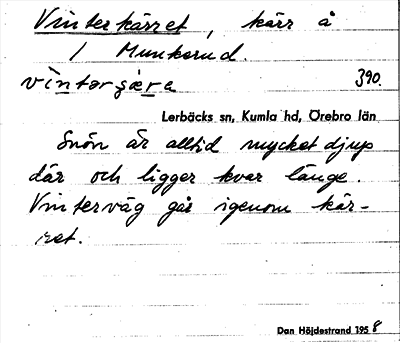 Vinterkärret, kärr å
/ Munkerud.
vìntərçæ̀rə 390.
Lerbäcks sn, Kumla hd, Örebro län
Snön är alltid mycket djup
där och ligger kvar länge.
Vinterväg går igenom kär-
ret.
Dan Höjdestrand 1958